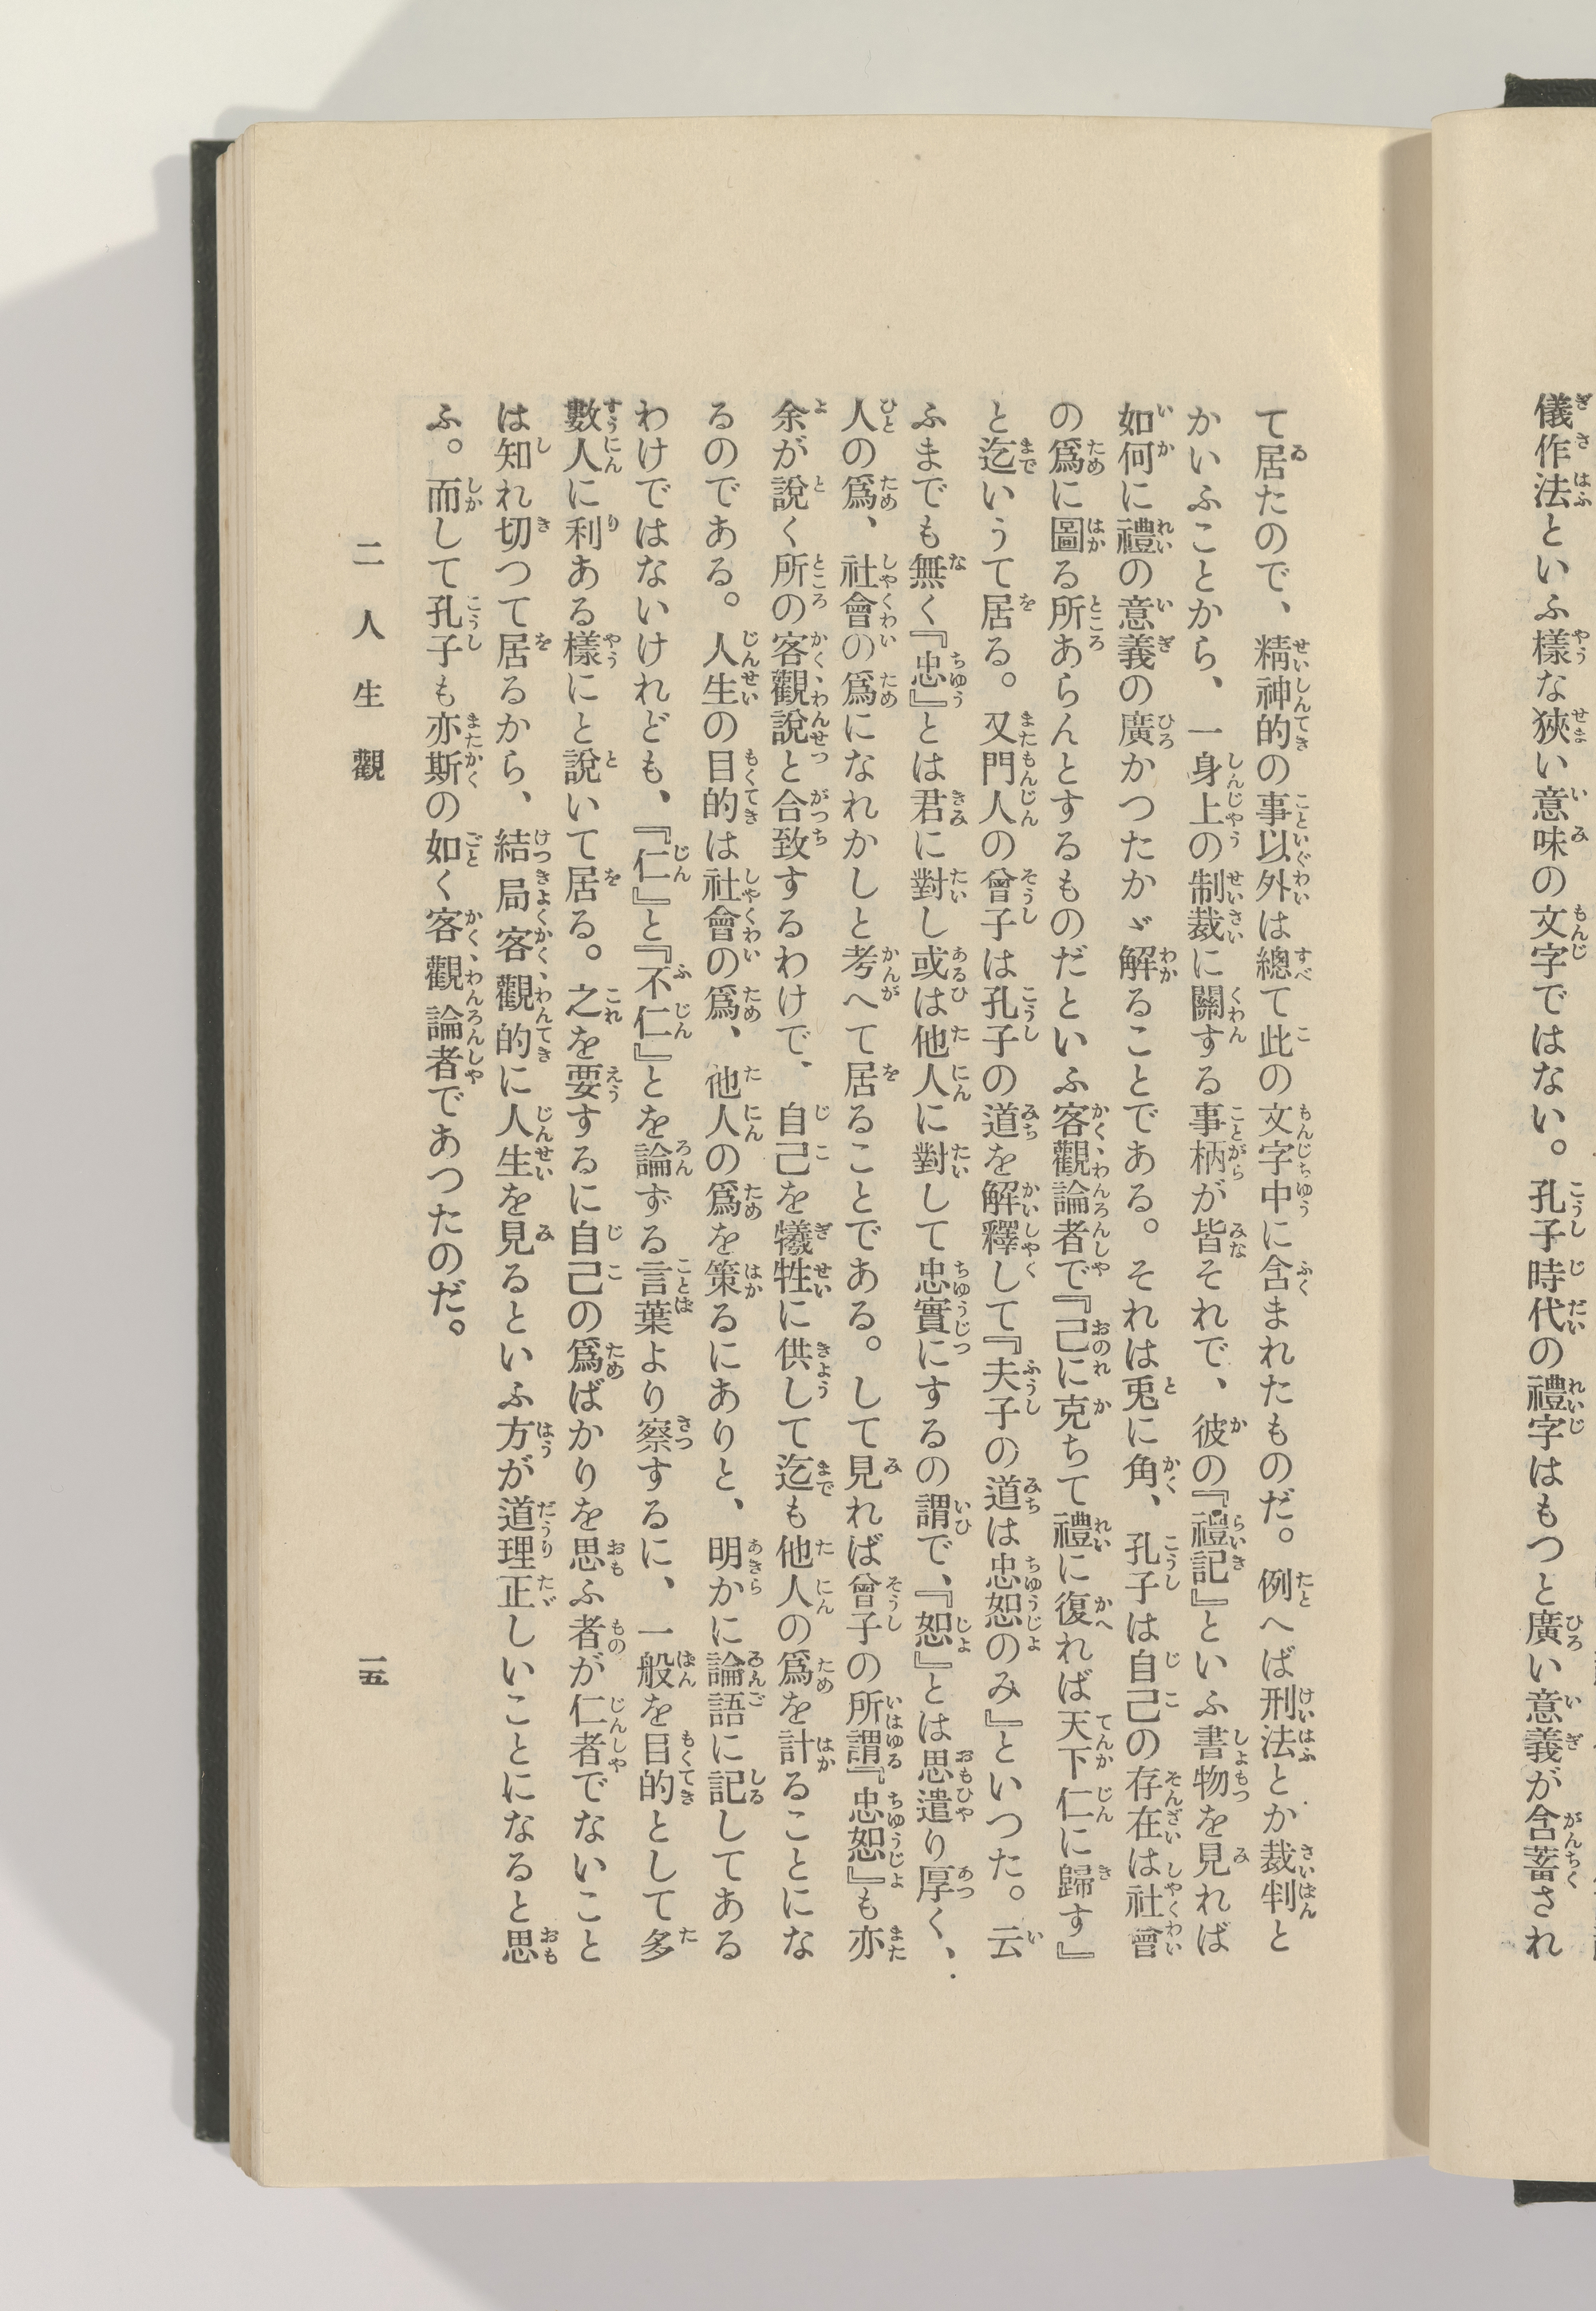 儀作法といふ樣な狹い意味の文字ではない。孔子時代の禮字はもつと廣い意義が含蓄され
て居たので、精神的の事以外は總て此の文字中に含まれたものだ。例へば刑法とか裁判と
かいふことから、一身上の制裁に關する事柄が皆それで、彼の『禮記』といふ書物を見れば
如何に禮の意義の廣かつたかゞ解ることである。それは兎に角、孔子は自己の存在は社會
の爲に圖る所あらんとするものだといふ客觀論者で『己に克ちて禮に復れば天下仁に歸す』
と迄いうて居る。又門人の曾子は孔子の道を解釋して『夫子の道は忠恕のみ』といつた。云
ふまでも無く『忠』とは君に對し或は他人に對して忠實にするの謂で、『恕』とは思遣り厚く、
人の爲、社會の爲になれかしと考へて居ることである。して見れば曾子の所謂『忠恕』も亦
余が說く所の客觀說と合致するわけで、自己を犧牲に供して迄も他人の爲を計ることにな
るのである。人生の目的は社會の爲、他人の爲を策るにありと、明かに論語に記してある
わけではないけれども、『仁』と『不仁』とを論ずる言葉より察するに、一般を目的として多
數人に利ある樣にと說いて居る。之を要するに自己の爲ばかりを思ふ者が仁者でないこと
は知れ切つて居るから、結局客觀的に人生を見るといふ方が道理正しいことになると思
ふ。而して孔子も亦斯の如く客觀論者であつたのだ。
二 人生觀
一五